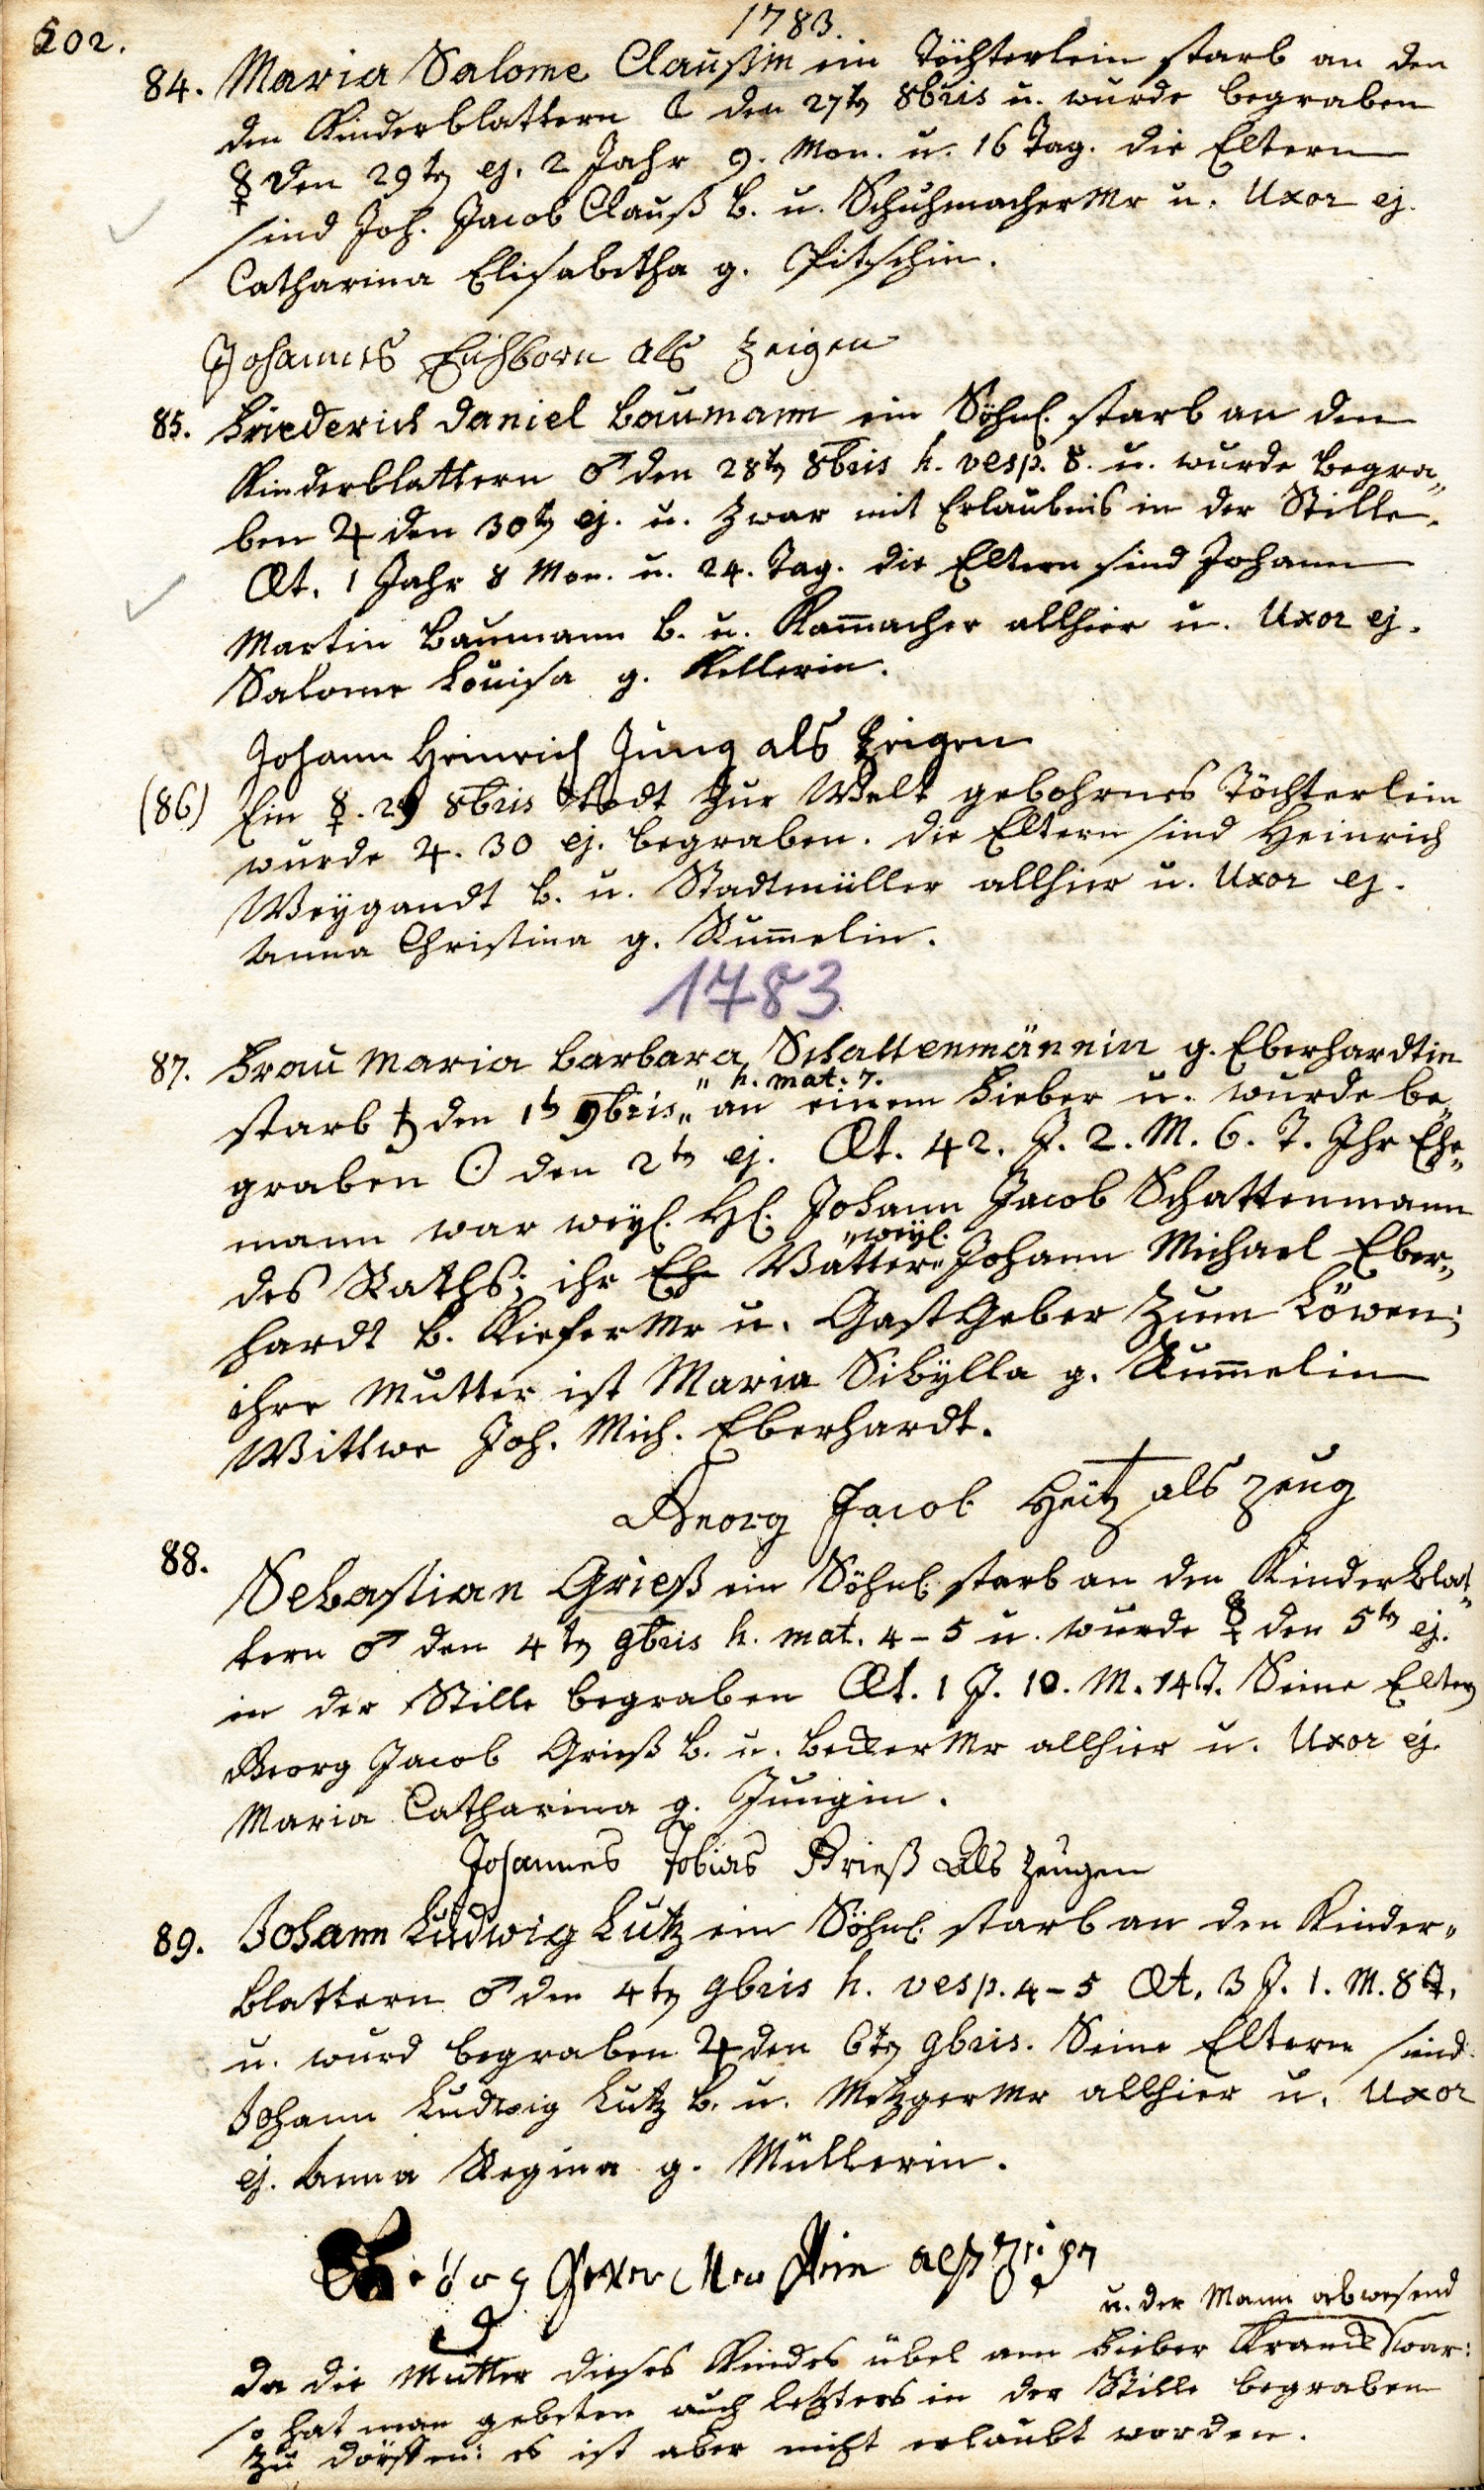 202.
1783.
84. Maria Salome Claußin ein Töchterlein starb an den
den Kinderblattern ☾ den 27tn 8bris u. wurde begraben
☿ den 29tn ej. 2 Jahr 9. Mon. u. 16 Tag. die Eltern
sind Joh. Jacob Clauß b. u. Schuhmacher Mr u. Uxor ej.
Catharina Elisabetha g. Pitschin.
Johannes Eichborn als zeigen
85. Friederich Daniel Baumann ein Söhnl. starb an den
Kinderblattern ♂ den 28tn 8bris h. vesp. 8. u. wurde begra„
ben ♃ den 30tn ej. u. zwar mit Erlaubnis in der Stille.
Æt. 1 Jahr 8 Mon. u. 24. Tag. die Eltern sind Johann
Martin Baumann b. u. Kam̄acher allhier u. Uxor ej.
Salome Louisa g. Kellerin.
Johann Heinrich Jung als Zeigen
(86) Ein ☿. 29 8bris todt zur Welt gebohrnes Töchterlein
wurde ♃. 30 ej. begraben. die Eltern sind Heinrich
Weygandt b. u. Stadtmüller allhier u. Uxor ej.
Anna Christina g. Kum̄elin.
1783
87. Frau Maria Barbara Schattenmännin g. Eberhardtin
„ h. mat. 7.
starb ♄ den 1t 9bris „ an einem Fieber u. wurde be„
graben ☉ den 2tn ej. Æt. 42. J. 2. M. 6. T. Ihr Ehe„
mann war weyl. Hl. Johann Jacob Schattenmann
„weyl.
des Raths; ihr Eh Vatter „ Johann Michael Eber„
hardt b. Kiefer Mr u. Gast Geber zum Löwen;
ihre Mutter ist Maria Sibÿlla g. Kum̄elin
Wittwe Joh. Mich. Eberhardt.
Georg Jacob Heitz als zeug
88. Sebastian Grieß ein Söhnl. starb an den Kinderblat„
tern ♂ den 4tn 9bris h. mat. 4-5 u. wurde ☿ den 5tn ej.
in der Stille begraben Æt. 1 J. 10. M. 14 T. Seine Eltern
Georg Jacob Grieß b. u. Becker Mr allhier u. Uxor ej.
Maria Catharina g. Jungin.
Johannes Tobias Grieß Als Zeugen
89. Johann Ludwig Lutz ein Söhnl. starb an den Kinder„
blattern ♂ den 4tn 9bris h. vesp. 4-5 Æt. 3 J. 1. M. 8 T.
u. wurd begraben ♃ den 6tn 9bris. Seine Eltern sind
Johann Ludwig Lutz b. u. Metzger Mr allhier u. Uxor
ej. Anna Regina g. Müllerin.
Georg als Zeigen
u. der Mann abwesend
da die Mutter dieses Kindes übel am Fieber Kranck war:
so hat man gebeten auch letzters in der Stille begraben
zu dörffen: es ist aber nicht erlaubt worden.